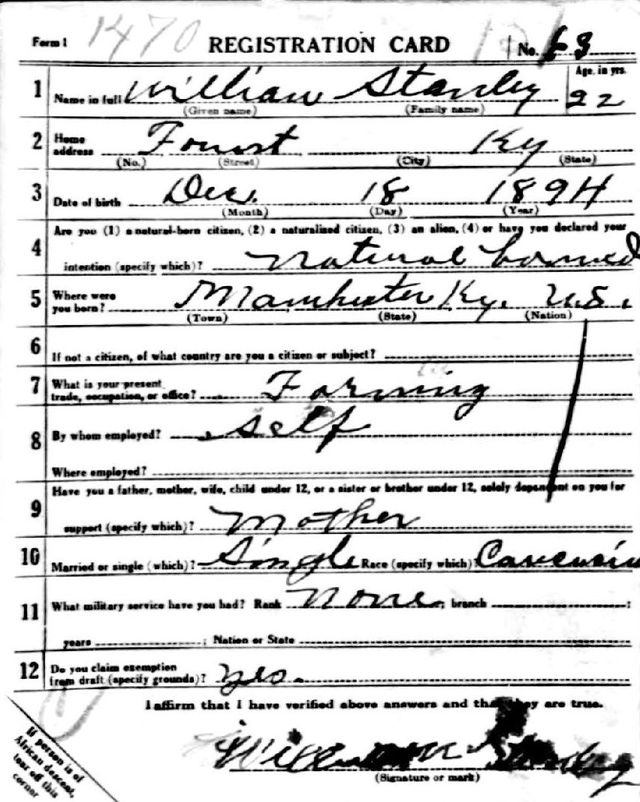 Form 1 1470 REGISTRATION CARD No. 63
1 Name in full William Stanley Age, in yrs. 22
(Given name) (Family name)
2 Home address Fourst Ky
(No.) (Street) (City) (State)
3 Date of birth Dec. 18 1894
(Month) (Day) (Year)
4 Are you (1) a natural-born citizen, (2) a naturalized citizen, (3) an alien, (4) or have you declared your
intention (specify which)? natural borned
5 Where were you born? Manchester Ky. U.S.
(Town) (State) (Nation)
6 If not a citizen, of what country are you a citizen or subject?
7 What is your present trade, occupation, or office? Farming
8 By whom employed? self
Where employed?
9 Have you a father, mother, wife, child under 12, or a sister or brother under 12, solely dependent on you for
support (specify which)? Mother
10 Married or single (which)? Single Race (specify which)? Caucasin
11 What military service have you had? Rank None; branch ;
years ; Nation or State
12 Do you claim exemption from draft (specify grounds)? yes.
I affirm that I have verified above answers and that they are true.
William Stanley
(Signature or mark)
If person is of
African descent,
tear off this
corner